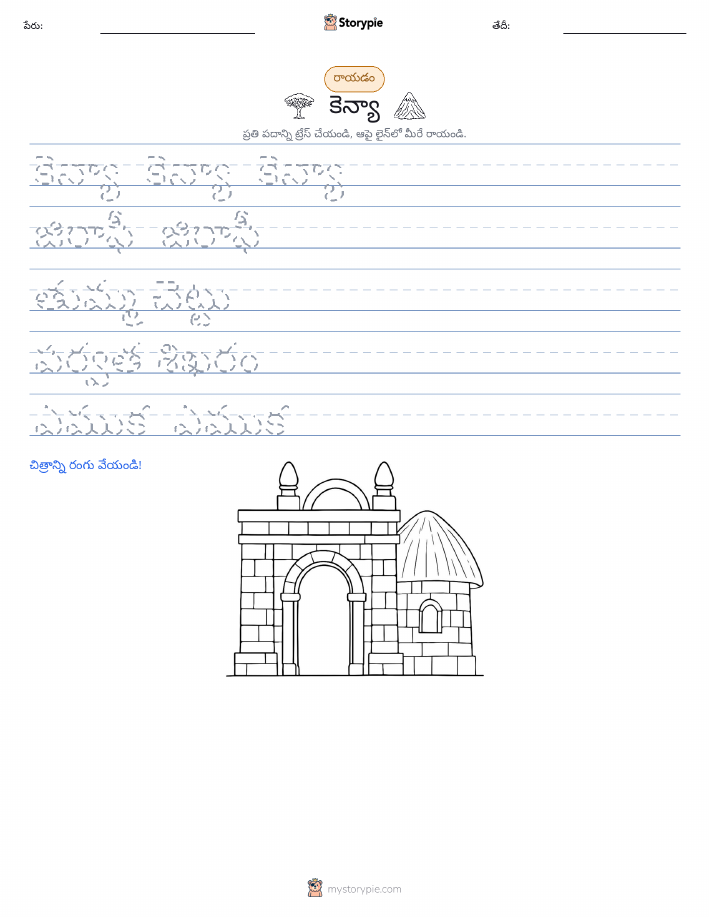 పేరు:
Storypie
తేదీ:
రాయడం
కెన్యా
ప్రతి పదాన్ని ట్రేస్ చేయండి, ఆపై లైన్‌లో మీరే రాయండి.
కెన్యా కెన్యా కెన్యా
జిరాఫీ జిరాఫీ
తుమ్మ చెట్టు
పర్వత శిఖరం
ఏనుగు ఏనుగు
చిత్రాన్ని రంగు వేయండి!
mystorypie.com